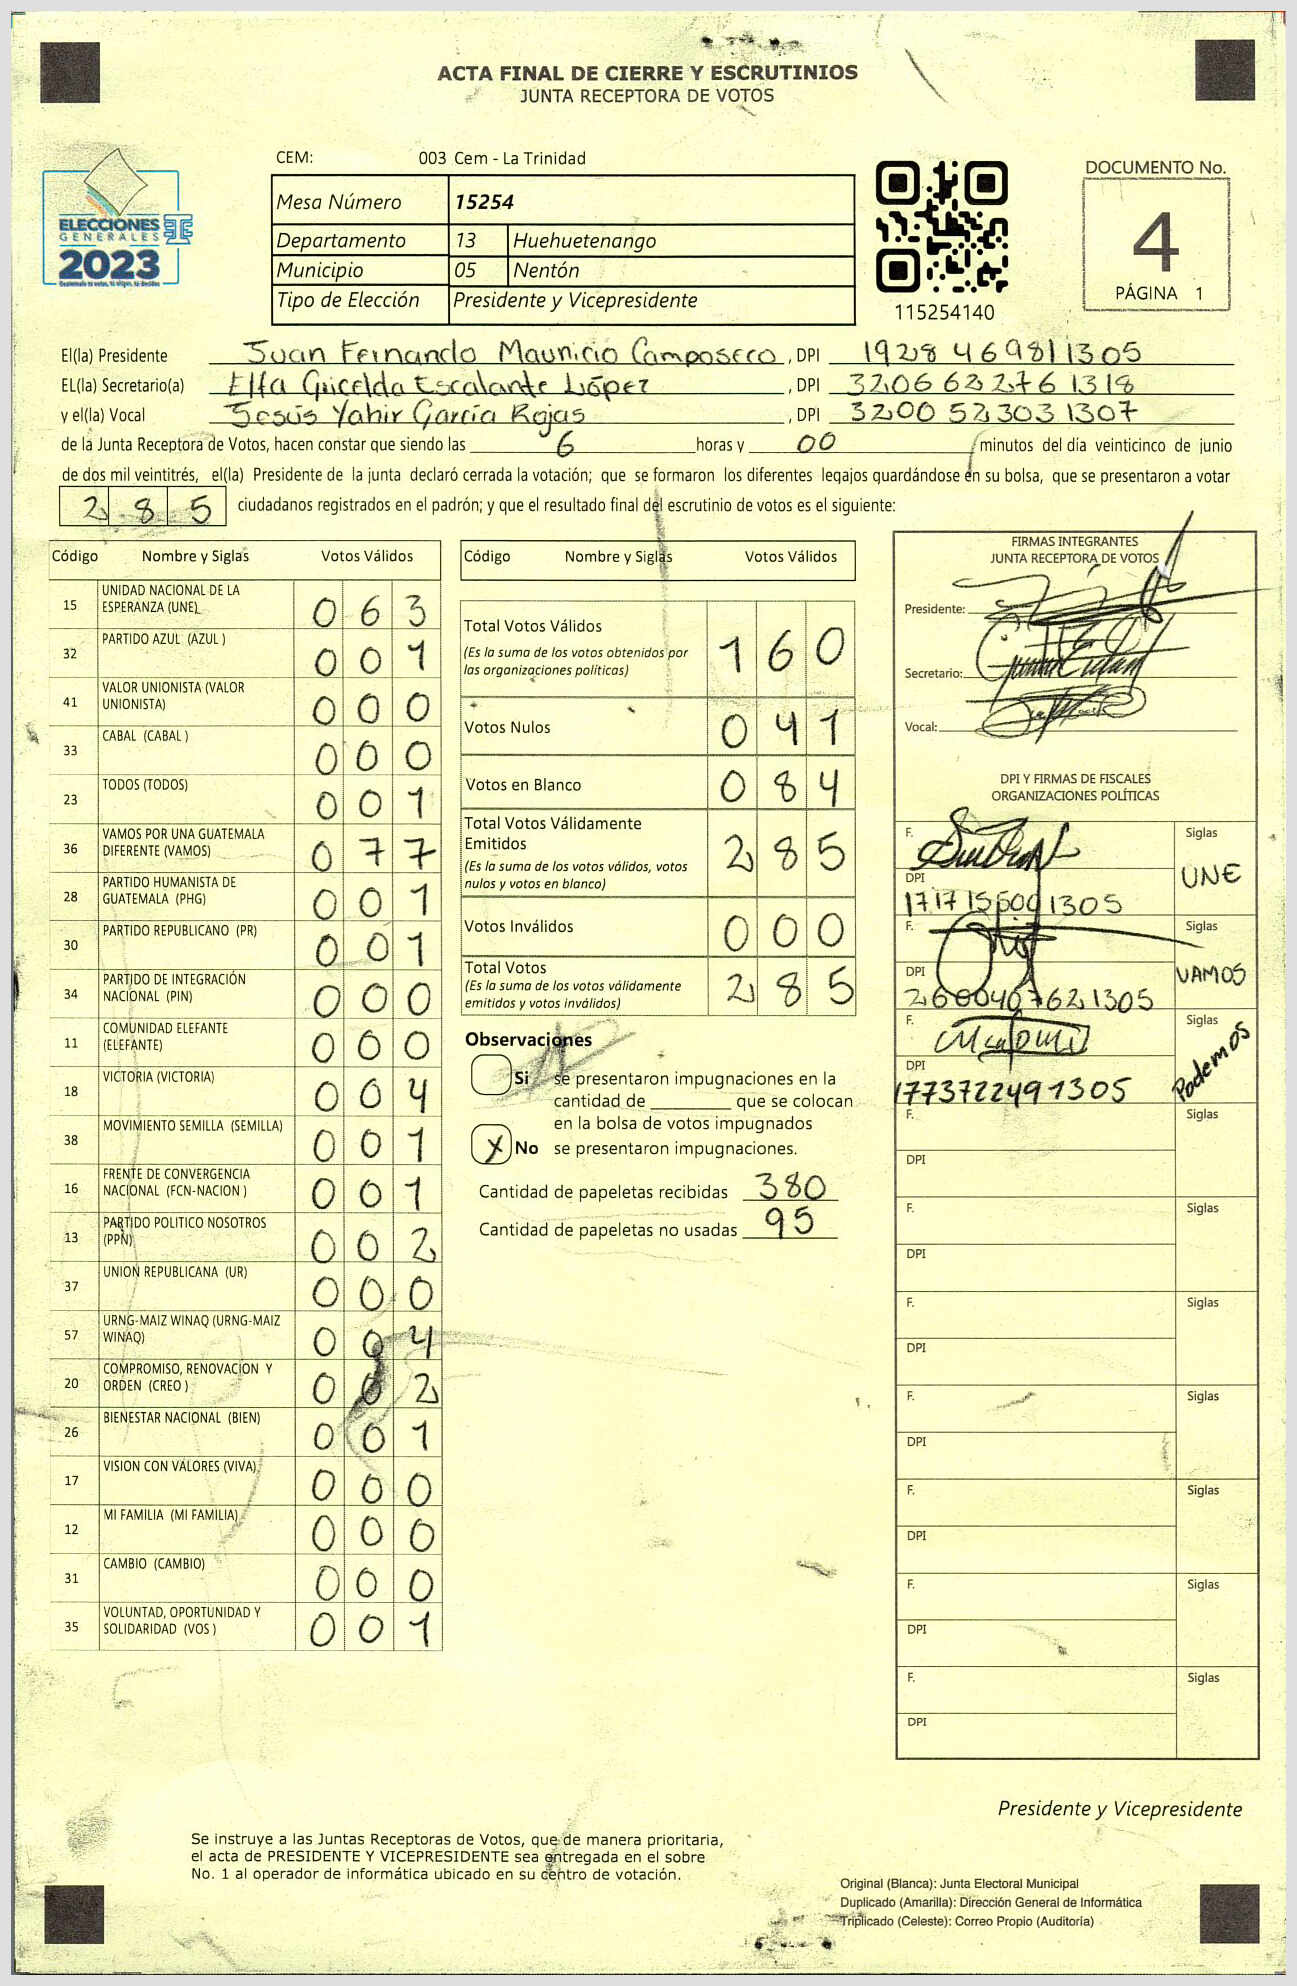 ACTA FINAL DE CIERRE Y ESCRUTINIOS
JUNTA RECEPTORA DE VOTOS
ELECCIONES
GENERALES
2023
CEM: 003 Cem - La Trinidad
Mesa Número 15254
Departamento 13 Huehuetenango
Municipio 05 Nentón
Tipo de Elección Presidente y Vicepresidente
115254140
DOCUMENTO No.
4
PÁGINA 1
El(la) Presidente Juan Fernando Mauricio Camposeco, DPI 1928 46981 1305
EL(la) Secretario(a) Elfa Gricelda Escalante López, DPI 3206 62276 1318
y el(la) Vocal Jesús Yahir García Rojas, DPI 3200 52303 1307
de la Junta Receptora de Votos, hacen constar que siendo las 6 horas y 00 minutos del día veinticinco de junio
de dos mil veintitrés, el(la) Presidente de la junta declaró cerrada la votación; que se formaron los diferentes legajos guardándose en su bolsa, que se presentaron a votar
285 ciudadanos registrados en el padrón; y que el resultado final del escrutinio de votos es el siguiente:
Código Nombre y Siglas Votos Válidos
15 UNIDAD NACIONAL DE LA ESPERANZA (UNE) 063
32 PARTIDO AZUL (AZUL ) 001
41 VALOR UNIONISTA (VALOR UNIONISTA) 000
33 CABAL (CABAL ) 000
23 TODOS (TODOS) 001
36 VAMOS POR UNA GUATEMALA DIFERENTE (VAMOS) 077
28 PARTIDO HUMANISTA DE GUATEMALA (PHG) 001
30 PARTIDO REPUBLICANO (PR) 001
34 PARTIDO DE INTEGRACIÓN NACIONAL (PIN) 000
11 COMUNIDAD ELEFANTE (ELEFANTE) 000
18 VICTORIA (VICTORIA) 004
38 MOVIMIENTO SEMILLA (SEMILLA) 001
16 FRENTE DE CONVERGENCIA NACIONAL (FCN-NACION ) 001
13 PARTIDO POLITICO NOSOTROS (PPN) 002
37 UNION REPUBLICANA (UR) 000
57 URNG-MAIZ WINAQ (URNG-MAIZ WINAQ) 004
20 COMPROMISO, RENOVACION Y ORDEN (CREO ) 002
26 BIENESTAR NACIONAL (BIEN) 001
17 VISION CON VALORES (VIVA) 000
12 MI FAMILIA (MI FAMILIA) 000
31 CAMBIO (CAMBIO) 000
35 VOLUNTAD, OPORTUNIDAD Y SOLIDARIDAD (VOS ) 001
Código Nombre y Siglas Votos Válidos
Total Votos Válidos 160
(Es la suma de los votos obtenidos por
las organizaciones políticas)
Votos Nulos 041
Votos en Blanco 084
Total Votos Válidamente
Emitidos 285
(Es la suma de los votos válidos, votos
nulos y votos en blanco)
Votos Inválidos 000
Total Votos 285
(Es la suma de los votos válidamente
emitidos y votos inválidos)
Observaciones
Si se presentaron impugnaciones en la
cantidad de ________ que se colocan
en la bolsa de votos impugnados
X No se presentaron impugnaciones.
Cantidad de papeletas recibidas 380
Cantidad de papeletas no usadas 95
FIRMAS INTEGRANTES
JUNTA RECEPTORA DE VOTOS
Presidente:
Secretario:
Vocal:
DPI Y FIRMAS DE FISCALES
ORGANIZACIONES POLÍTICAS
F. Siglas
UNE
DPI
1717 15500 1305
F. Siglas
VAMOS
DPI
2600407621305
F. Siglas
Podemos
DPI
1773722491305
F. Siglas
DPI
F. Siglas
DPI
F. Siglas
DPI
F. Siglas
DPI
F. Siglas
DPI
F. Siglas
DPI
F. Siglas
DPI
Presidente y Vicepresidente
Se instruye a las Juntas Receptoras de Votos, que de manera prioritaria,
el acta de PRESIDENTE Y VICEPRESIDENTE sea entregada en el sobre
No. 1 al operador de informática ubicado en su centro de votación.
Original (Blanca): Junta Electoral Municipal
Duplicado (Amarilla): Dirección General de Informática
Triplicado (Celeste): Correo Propio (Auditoría)